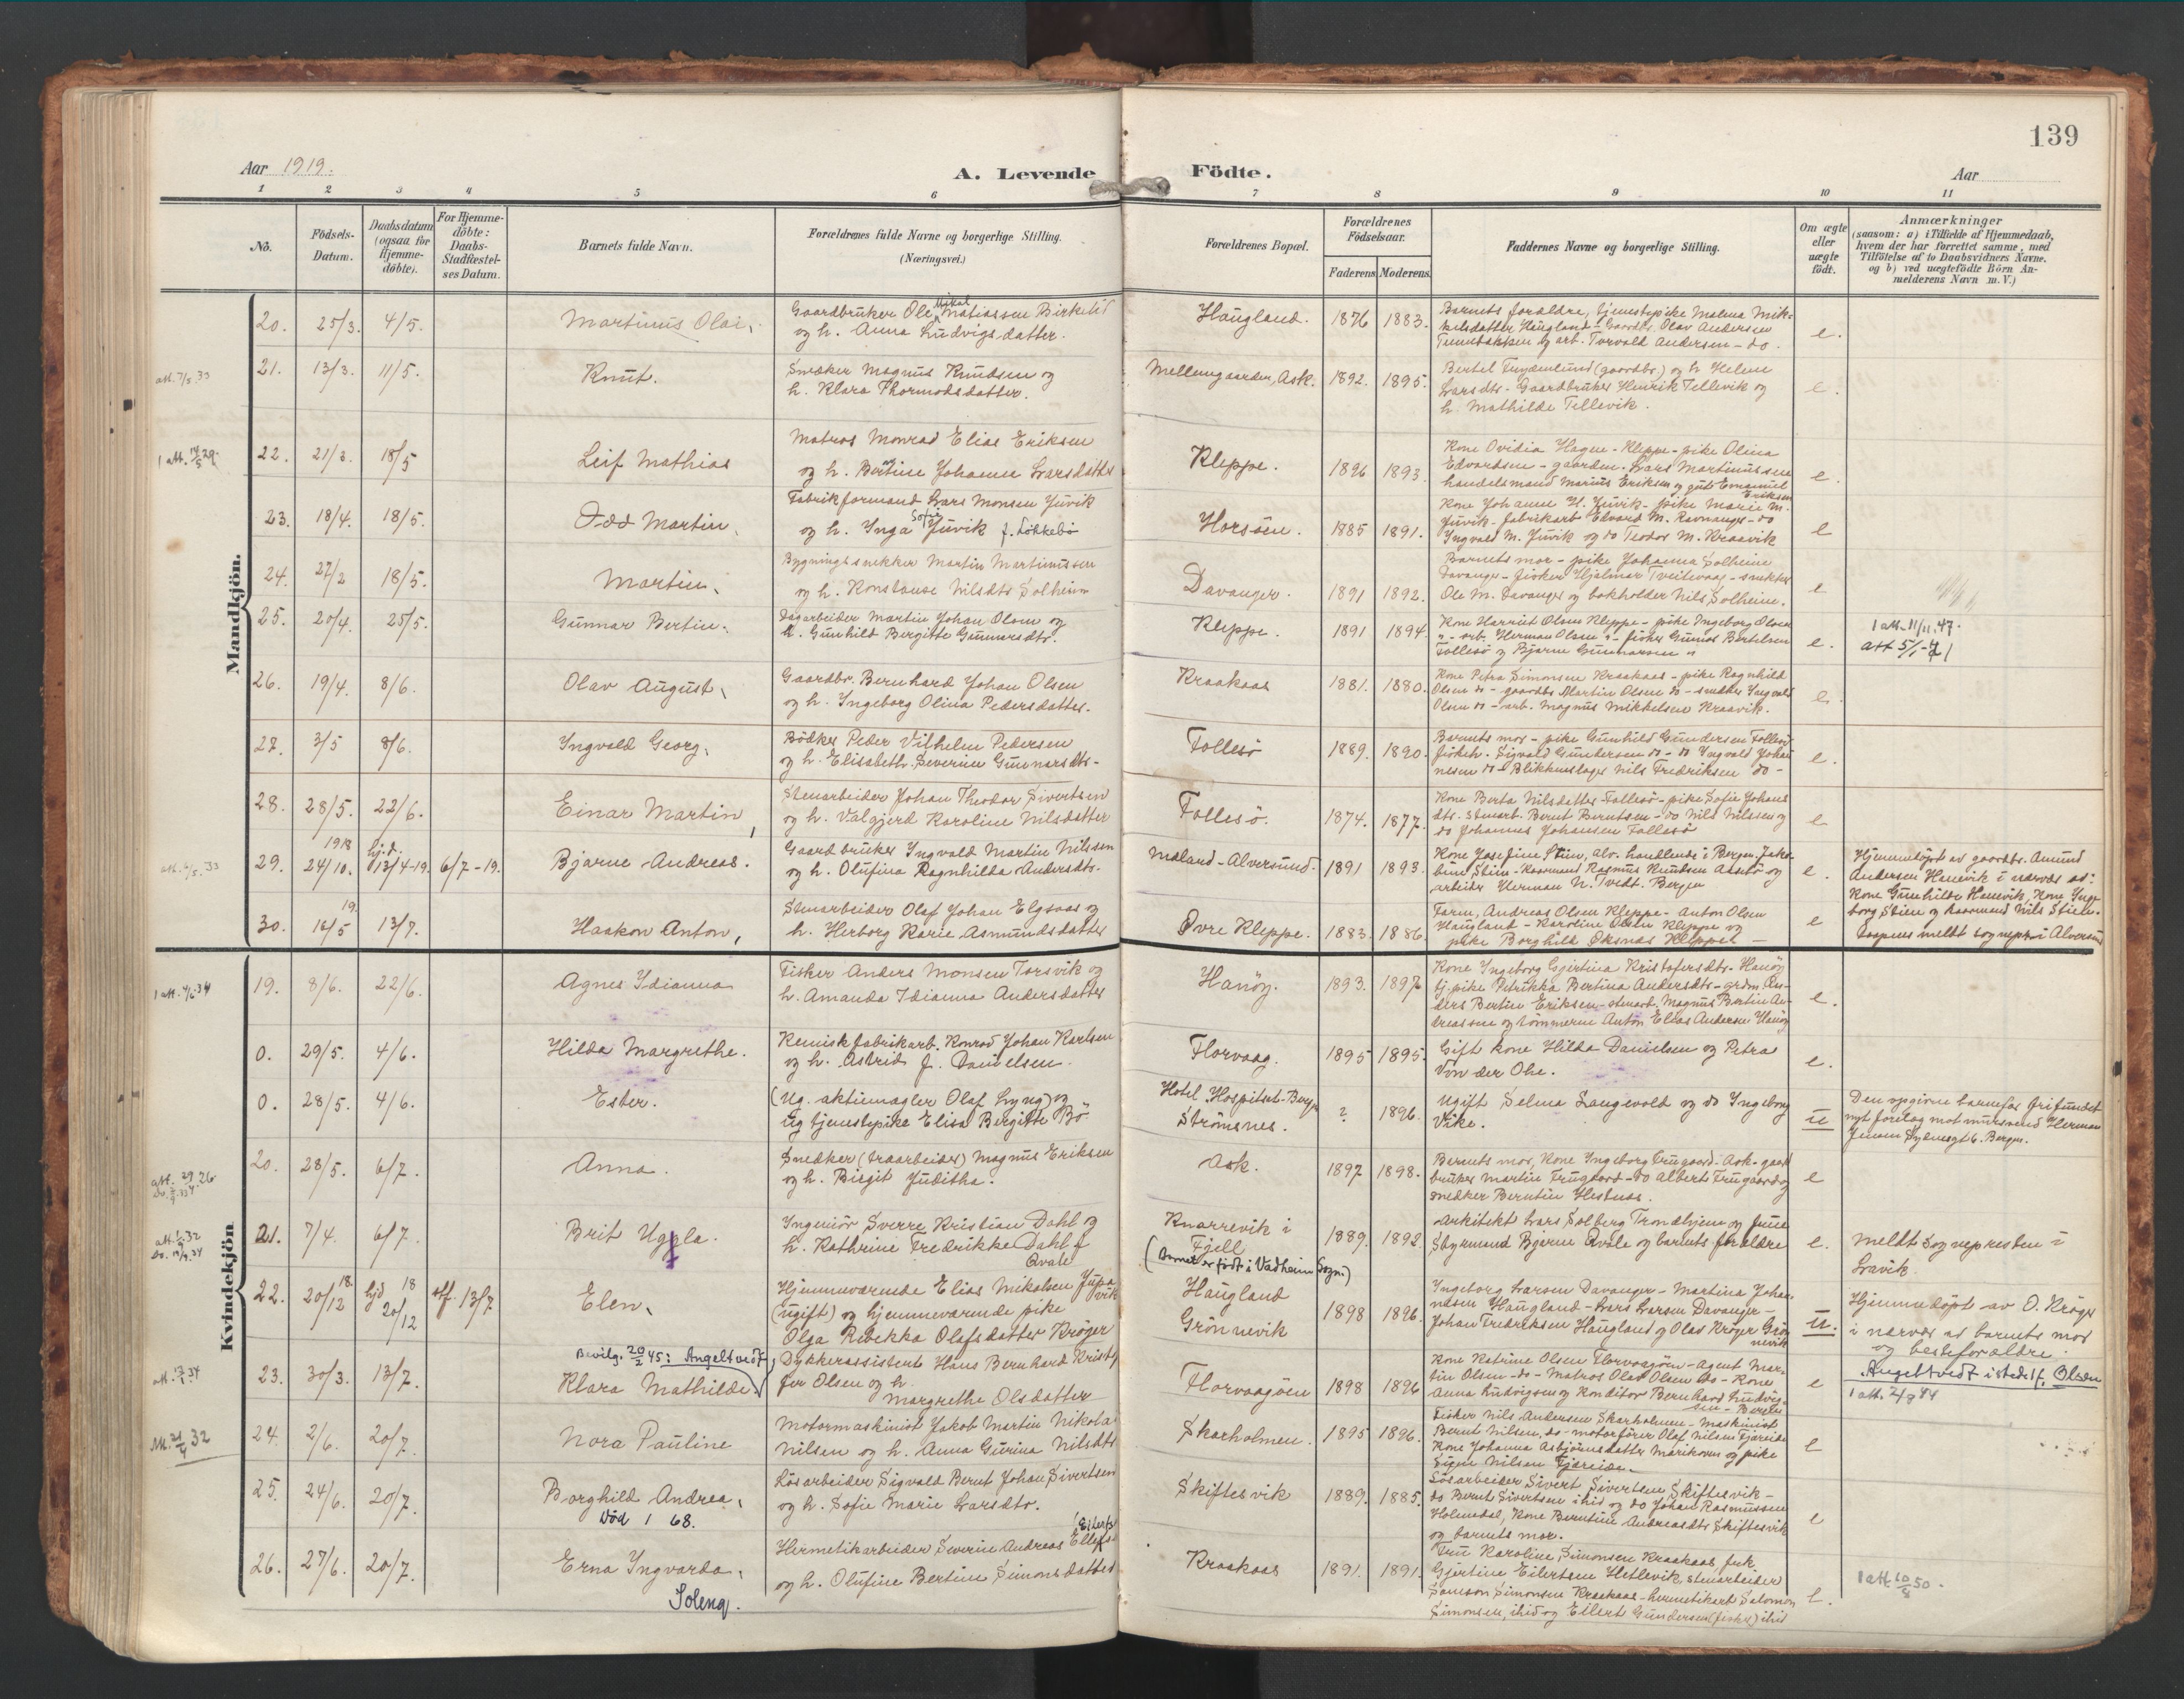 139
Aar 1919.
A. Levende Födte.
Aar
1 2 3 4 5 6 7 8 9 10 11
No.
Födsels-
Datum.
Daabsdatum
(ogsaa for
Hjemme-
döbte).
For Hjemme-
döbte:
Daabs-
Stadfæstel-
ses Datum.
Barnets fulde Navn.
Forældrenes fulde Navne og borgerlige Stilling.
(Næringsvei.)
Forældrenes Bopæl.
Forældrenes
Födselsaar.
Faderens. Moderens.
Faddernes Navne og borgerlige Stilling.
Om ægte
eller
uægte
födt.
Anmærkninger
(saasom: a) i Tilfælde af Hjemmedaab,
hvem der har forrettet samme, med
Tilföielse af to Daabsvidners Navne.
og b) ved uægtefödte Börn An-
melderens Navn m. V.)
Mandkjön.
20. 25/3. 4/5. Martinus Olai.
Gaardbruker Ole Mikal Matiassen Birkelid
og h. Anna Ludvigsdatter.
Haugland. 1876 1883.
Barnets forældre, tjenestepike Malena Mik-
kelsdatter Haugland - Gaardbr. Olav Andersen
og arb. Torvald Andersen - do.
e.
21. 13/3. 11/5. Knut.
Snedker Magnus Knudsen og
h. Klara Thormodsdatter.
Mellemgaarden, Ask. 1892. 1895.
Bertel (gaardbr.) og h. Helene
Larsdtr. - Gaardbruker Henrik Tellevik og
h. Mathilde Tellevik.
e.
22. 21/3. 18/5 Leif Mathias
Matros Monrad Elias Eriksen
og h. Bertine Johanne Larsdatter
Kleppe. 1896 1893.
Kone Ovidia Hagen - Kleppe - pike Olina
Edvardsen - gaarden. Lars Martinussen
handelsmand Marius Eriksen og gut Emanuel
Eriksen
e.
23. 18/4. 18/5. Odd Martin
Fabrikformand Lars Monsen Juvik
og h. Inga Sofie Juvik f. Lökkebö
Horsöen. 1885 1891.
Kone Johanne H. Juvik - pike Marie M.
Juvik - fabrikarb Edvard M. Ravnanger - do
Ingvald M. Juvik og do Teodor M. Kraavik
e
24. 27/2 18/5. Martin.
Bygningssnekker Martin Martinussen
og h. Konstanse Nilsdtr Solheim
Davanger. 1891 1892.
Barnets mor - pike Johanna Solheim
Davanger - fisker Hjalmar Tveitevaag - snekker
Ole M. Davanger og bokholder Nils Solheim.
e
25. 20/4. 25/5. Gunnar Bertin.
Dagarbeider Martin Johan Olsen og
h. Gunhild Birgitte Gunnarsdtr.
Kleppe. 1891 1894.
Kone Harriet Olsen Kleppe - pike Ingeborg Olsen
" - arb. Herman Olsen " - fisker Gunnar Bertelsen
Follesö og Bjarne Gunnarsen "
e.
1 att. 11/11. 47.
att 5/1-71
26. 19/4. 8/6. Olav August.
Gaardbr. Bernhard Johan Olsen
og h. Ingeborg Olina Pedersdatter.
Kraakaas 1881. 1880.
Kone Petra Simonsen Kraakaas - pike Ragnhild
Olsen do - gaardbr Martin Olsen do - snedker Ingvald
Olsen do - arb. Magnus Mikkelsen Kraavik.
e.
27. 3/5 8/6. Ingvald Georg.
Bödker Peder Vilhelm Pedersen
og h. Elisabeth Severine Gunnarsdtr.
Follesö 1889. 1890.
Barnets mor - pike Gunhild Gundersen Follesö
fisker. Sigvald Gundersen do - do Ingvald Johan-
nesen do - Blikkenslager Nils Fredriksen do -
e.
28. 28/5. 22/6. Einar Martin
Stenarbeider Johan Theodor Sivertsen
og h. Valgjerd Karoline Nilsdatter
Follesö. 1874. 1877.
Kone Berta Nilsdatter Follesö - pike Sofie Johans
dtr. stenarb. Bernt Berntsen - do Nils Nilssen og
do Johannes Johansen Follesö
e
29. 1918 24/10. hj.d. 13/4-19. 6/7-19. Bjarne Andreas.
Gaardbruker Ingvald Martin Nilssen
og h. Olufina Ragnhilda Andersdtr.
Mæland - Alversund. 1891 1893.
Kone Josefine Stien, Alv. handlende i Bergen, Jako-
bine Stien - Kaarmand Rasmus Knudsen og
arbeider Herman N. Tvedt. Bergen
e.
Hjemmedöpt av gaardbr. Amund
Andersen Hanevik i nærvær av:
Kone Gunhilde Hanevik, Kone Inge-
borg Stien og Kaarmand Nils Stien.
Daapen meldt sogneprs. i Alversund
30. 19. 16/5 13/7. Haakon Anton,
Stenarbeider Olaf Johan Elgsaas og
h. Herborg Karie Asmundsdatter
Övre Kleppe. 1883. 1886.
Farm. Andreas Olsen Kleppe - Anton Olsen
Haugland - Karoline Olsen Kleppe og
pike Borghild Öksnes Kleppe -
e
Kvindekjön
19. 8/6. 22/6. Agnes Idianna
Fisker Anders Monsen Torsvik og
h. Amanda Idianna Andersdatter
Hanöy. 1893. 1897.
Kone Ingeborg Gjertina Kristofersdtr. Hanöy
tj.pike Petrikka Bertina Andersdtr - grdm. An-
ders Bertin Eriksen - stenarb. Magnus Bertin An-
dreassen og tömmerm Anton Elias Andersen Hanöy
e.
0. 29/5. 4/6. Hilda Margrethe.
Kemisk fabrikarb. Konrad Johan Karlsen
og h. Astrid f. Danielsen.
Florvaag. 1895 1895.
Gift kone Hilda Danielsen og Petra
Von der Ohe.
e.
0. 28/5. 4/6. Ester.
(Ug. aktiemægler Olaf Lyng) og
Ug tjenestepike Elisa Bergitte Bö
Hotel "Hospitset" Bergen
Strömsnes. ? 1896.
Ugift Selma Langevold og do Ingeborg
Vike.
u
Den opgivne barnefar frifundet
nyt forelæg mot mursvend Herman
Jensen Bergen.
20. 28/5. 6/7. Anna.
Snedker (træarbeider) Magnus Eriksen
og h. Birgit Juditha.
Ask. 1897 1898.
Barnets mor, Kone Ingeborg Trugaard - Ask - gaard
bruker Martin Trugaard - do Albert Trugaard og
snedker Berntin Hestnes.
e
21. 7/4. 6/7. Brit Uggla.
Ingeniör Sverre Kristian Dahl og
h. Kathrine Fredrikke Dahl f
Qvale
Knarrevik i
Fjell
(Barnet er födt i Vadheim Sogn.)
1889. 1892
Arkitekt Lars Solberg Trondhjem og frue
Styrmand Bjarne Qvale og barnets forældre
e.
Meldt Sognepresten i
Lavik.
22. 20/12 18. hjd 18 20/12 stf. 13/7 Elen.
Hjemmeværende Elias Mikalsen Jupa
vik
(ugift) og hjemmeværende pike
Olga Rebekka Olafsdatter Kröger
Haugland
Grönnevik
1898 1896.
Ingeborg Larsen Davanger - Martina Johan-
nesen Haugland - Lars Larsen Davanger -
Johan Fredriksen Haugland og Olav Kröger Grön
nevik
u.
Hjemmedöpt av O. Kröger
i nærvær av barnets mor
og besteforældre.
23. 30/3. 13/7. Bevilg. 20/2 45: Angeltvedt,
Klara Mathilde
Dykkerassistent Hans Bernhard Kristof
fer Olsen og h.
Margrethe Olsdatter
Florvaagöen 1898 1896
Kone Katrine Olsen Florvaagöen - Agent Mar-
tin Olsen - do - Matros Olav Olsen do - Kone
Anna Ludvigsen og Konditor Bernhard Ludvig-
sen - Bergen
e
Angeltvedt istedetf. Olsen
1 att. 2/8 44
24. 2/6. 20/7. Nora Pauline
Motormaskinist Jakob Martin Nikolai
Nilsen og h. Anna Gurina Nilsdtr
Skarholmen. 1895 1896.
Fisker Nils Andersen Skarholmen - Maskinist
Bernt Nilsen, do - motorförer Olaf Nilsen Fjæreide
Kone Johanna Asbjörnsdatter og pike
Signe Nilsen Fjæreide.
e
25. 24/6. 20/7. Borghild Andrea.
Död 1 68.
Lösarbeider Sigvald Bernt Johan Sivertsen
og h. Sofie Marie Larsdtr.
Skiftesvik 1889. 1885.
Lösarbeider Sivert Sivertsen Skiftesvik -
do Bernt Sivertsen ibid og do Johan Rasmussen
Holmedal, Kone Berntine Andreasdtr Skiftesvik
og barnets mor.
e
26. 27/6. 20/7. Erna Ingvarda.
Soleng.
Hermetikarbeider Severin Andreas Ellefs-
(Eilerts
og h. Olufine Bertine Simonsdatter
Kraakaas 1891. 1891.
Fru Karoline Simonsen Kraakaas frk
Gjertine Eilertsen Hetlevik, stenarbeider
Samson Simonsen Kraakaas - hermetikarb Salomon
Simonsen, ibid og Eilert Gundersen (fisker) ibid
e.
1 att. 10/4 50.
att. 7/5. 33
1 att. 14/5 29.
1 att. 4/6. 34
att. 13/1. 34